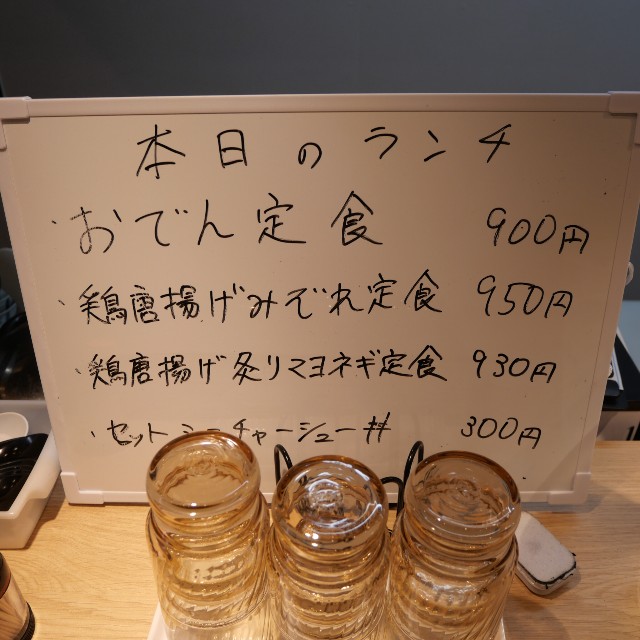 本日のランチ
・おでん定食 900円
・鶏唐揚げみぞれ定食 950円
・鶏唐揚げ炙りマヨネギ定食 930円
・セット チャーシュー丼 300円